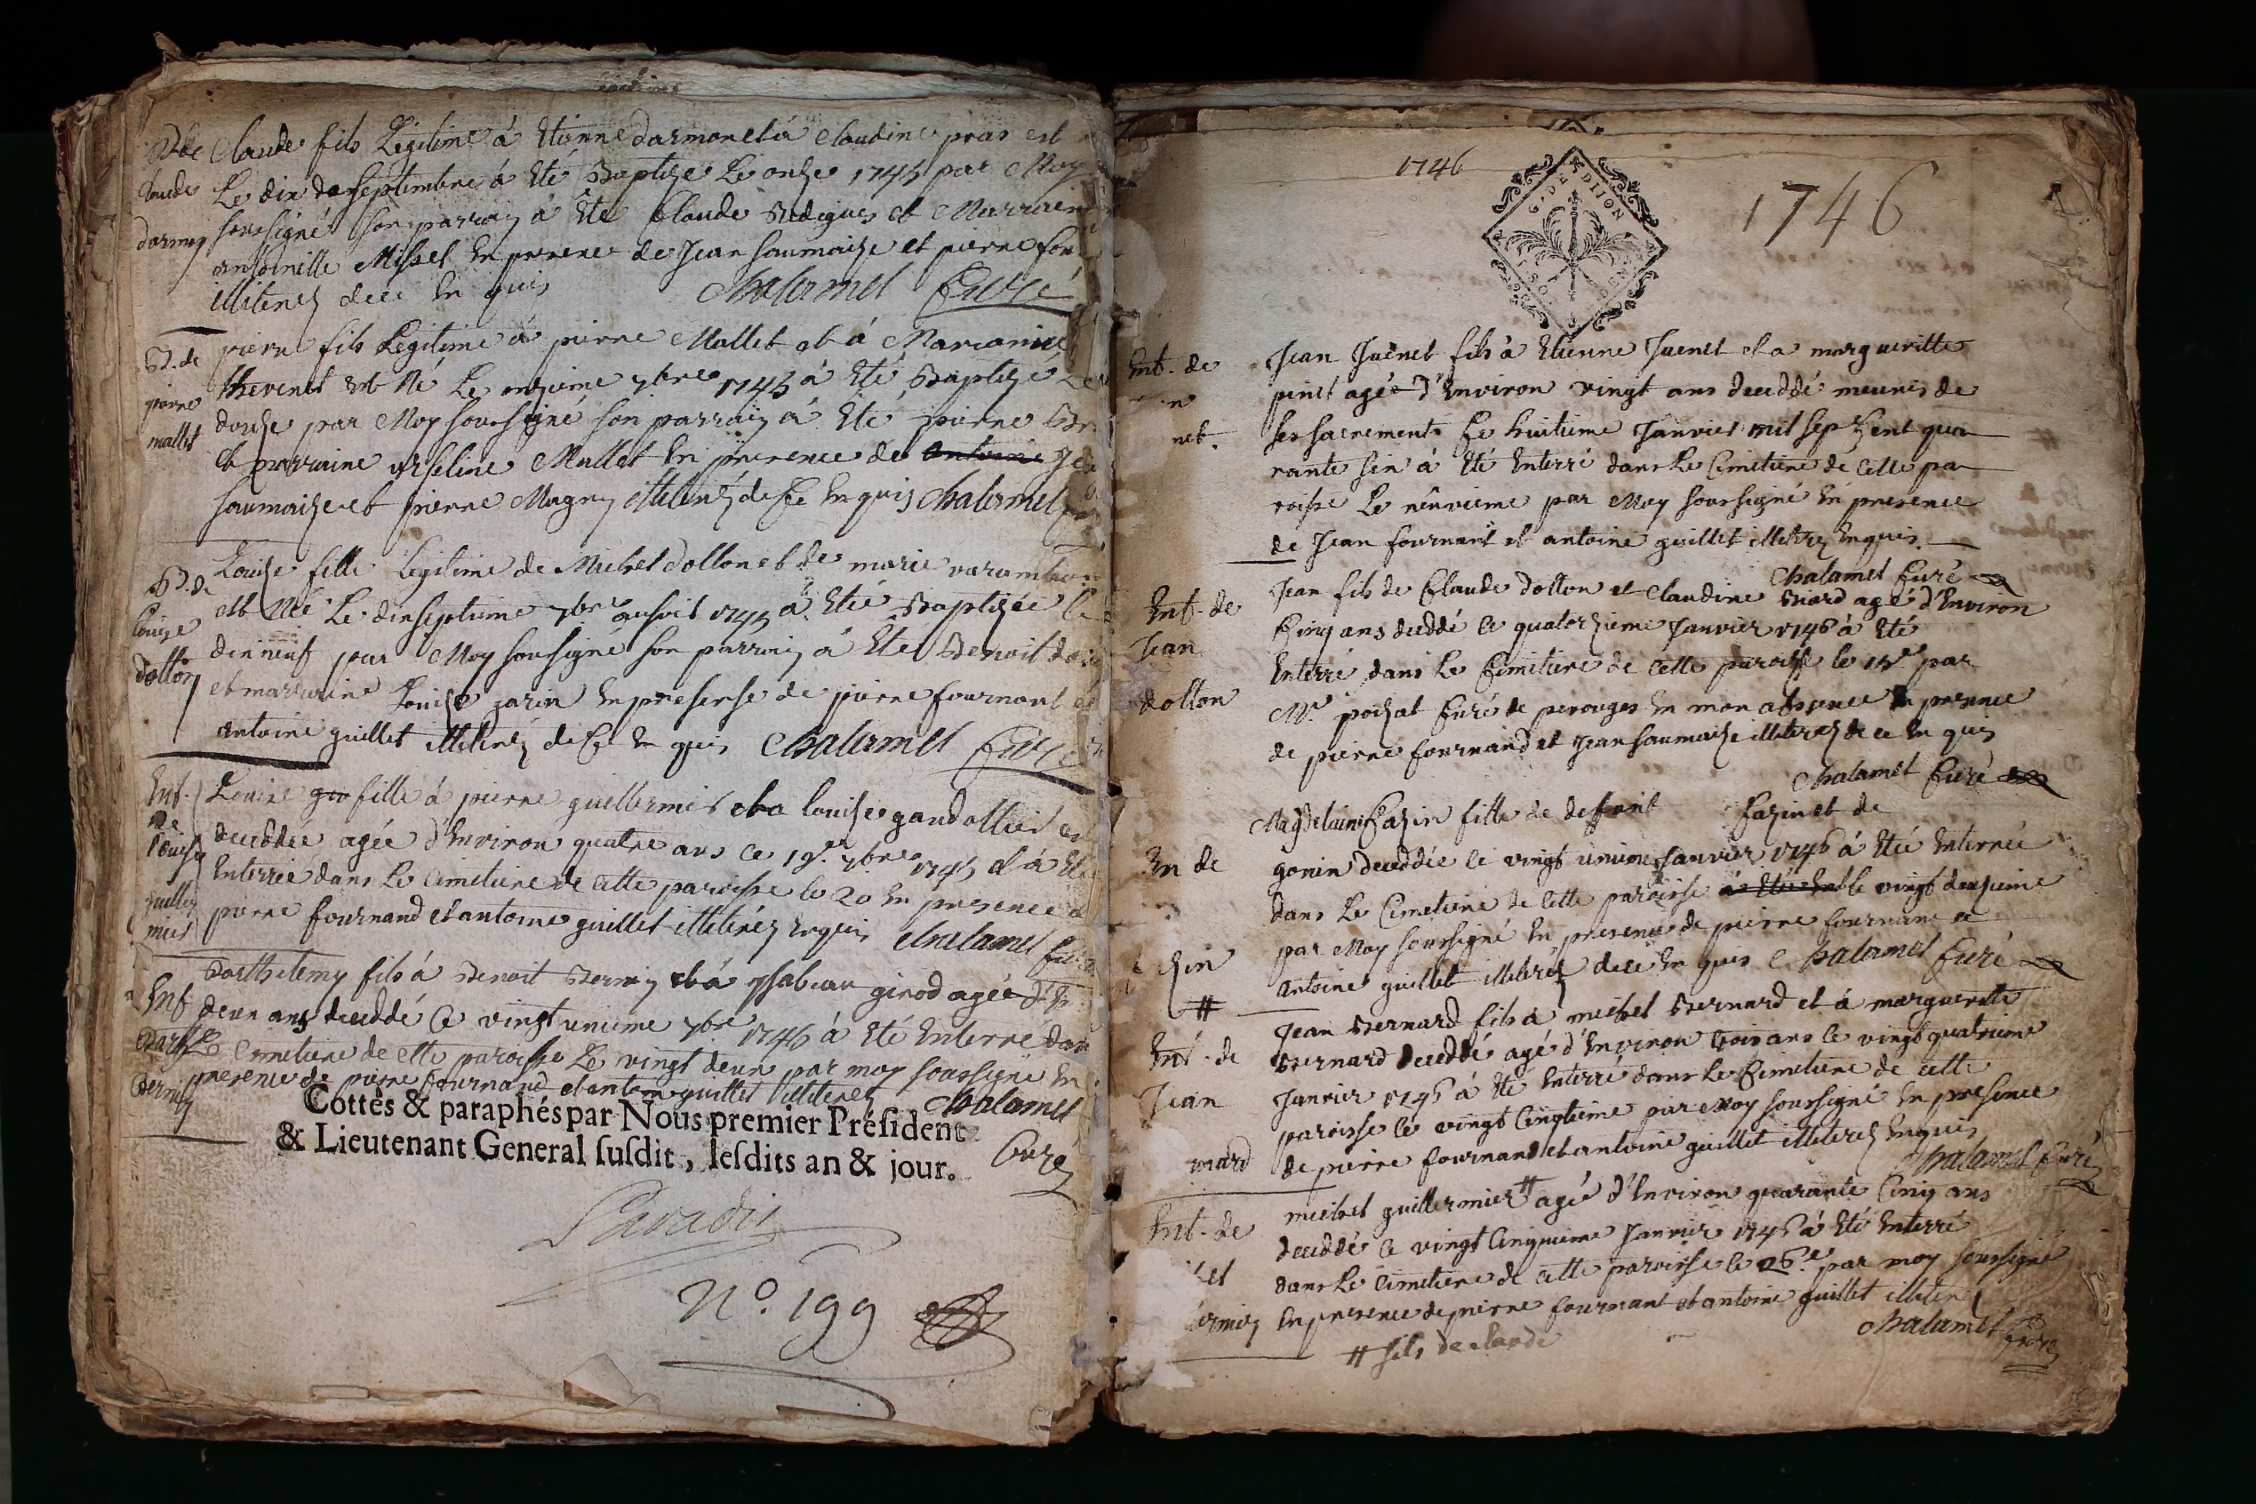 B. de
Claude
darmey
Claude fils Legitime à Etienne darmonet à Claudine pras est
Le dix de septembre à Eté Baptize Le onze 1745 par Moy
soussigné son parrain à Eté Claude et Marraine
antoinette Misset En presence de Jean saumaize et pierre
illiterez de ce En quis Chalamel Curé
B. de
pierre
mallet
pierre fils Legitime à pierre Mallet et à
thevenet est Né Le onzieme 7bre 1745 à Eté Baptizé Le
douze par Moy soussigné son parrain à Eté pierre
et marraine urseline Mallet En presence de antoine
saumaize et pierre Magny illiterez de Ce Enquis Chalamel
B. de
Louize
dollon
Louize fille Legitime de Michel dollon et de marie
est Née Le dixseptieme 7bre au soir 1745 à Eté Baptizée Le
dix neuf par Moy soussigné son parrain à Eté Benoit
et marraine Louize En presense de pierre fournant et
antoine guillet illiterez de Ce En quis Chalamel Curé
Ent.
de
Louize
guiller
mier
Louize fille à pierre guillermier et a Louize gandollier est
deceddée agée d'Environ quatre ans Le 19e 7bre 1745 et à Eté
Enterrée dans Le Cimetiere de cette paroisse le 20 En presence de
pierre fournand et antoine guillet illiterez Enquis Chalamel
Ent
Barth
Berney
Barthelemy fils à Benoit Berney et à ysabeau girod agée d'En
deux ans deceddé Le vingt unieme 7bre 1746 à Eté Enterré dans
Le Cimetiere de cette paroisse Le vingt deux par moy soussigné En
presence de pierre fournand et antoine guillet illiterez Chalamel
Curé
Cottés & paraphés par Nous premier Préſident
& Lieutenant General ſuſdit, leſdits an & jour.
Paradis
No. 199
1746
G. DE DIJON
1746
Ent. de
net
Jean Juenet fils à Etienne Juenet et a margueritte
pinet agée d'Environ vingt ans deceddé meunis de
ses sacrements Le huitieme Janvier mil sept Cent qua
rante six à Eté Enterré dans Le Cimetiere de Cette pa
roisse Le neuvieme par Moy soussigné En presence
de Jean fournant et antoine guillet illiterez Enquis
Chalamel Curé
Ent. de
Jean
dollon
Jean fils de Claude dollon et Claudine Biard agé d'Environ
Cinq ans deceddé Le quatorzieme Janvier 1746 à Eté
Enterré dans Le Cimetiere de Cette paroisse le 15e par
Mr. pozat Curé de perouges En mon absence En presence
de pierre fournand et Jean saumaize illiterez de ce En quis
Chalamel Curé
En de
zin
Magdelaine Cazin fille de deffunt Cazin et de
gonin deceddée Le vingt unieme Janvier 1746 à Eté Enterrée
dans Le Cimetiere de Cette paroisse à Eté Ent le vingt deuxieme
par Moy soussigné En presence de pierre fournant et
antoine guillet illiterez de ce En quis Chalamel Curé
Ent. de
Jean
nard
Jean Bernard fils à michel Bernard et à margueritte
Bernard deceddé agé d'Environ trois ans Le vingt quatrieme
Janvier 1746 à Eté Enterré dans Le Cimetiere de cette
paroisse Le vingt Cinqtieme par Moy soussigné En presence
de pierre fournand et antoine guillet illiterez Enquis
Chalamel Curé
Ent. de
hel
ermier
michel guillermier # agé d'Environ quarante Cinq ans
deceddé Le vingt Cinquieme Janvier 1746 à Eté Enterré
dans Le Cimetiere de Cette paroisse le 26e par moy soussigné
En presence de pierre fournant et antoine guillet illiterez
Chalamel Curé
# fils de claude